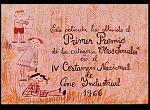 Esta película ha obtenido el
Primer Premio
de la categoría
en el
IV Certamen Nacional
de
Cine Industrial
1966